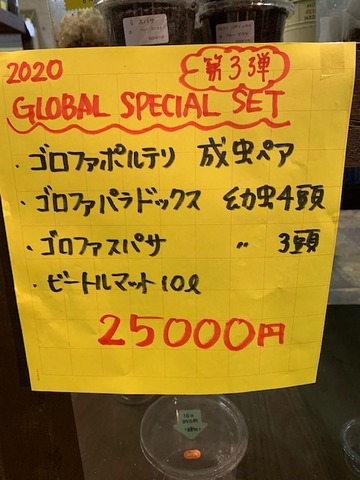 2020
第3弾
GLOBAL SPECIAL SET
・ゴロファポルテリ 成虫ペア
・ゴロファパラドックス 幼虫4頭
・ゴロファスパサ 〃 3頭
・ビートルマット10ℓ
25000円